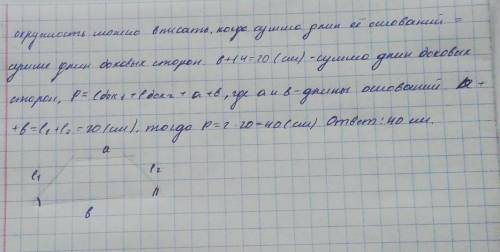 окружность можно вписать, когда сумма длин её оснований =
сумме длин боковых сторон. 6+14=20 (см) - сумма длин боковых
сторон, P=lбок₁+lбок₂+a+b, где a и b - длины оснований. a+
+b=l₁+l₂=20(см), тогда P=2·20=40(см). Ответ: 40 см.
a
l₁
l₂
b